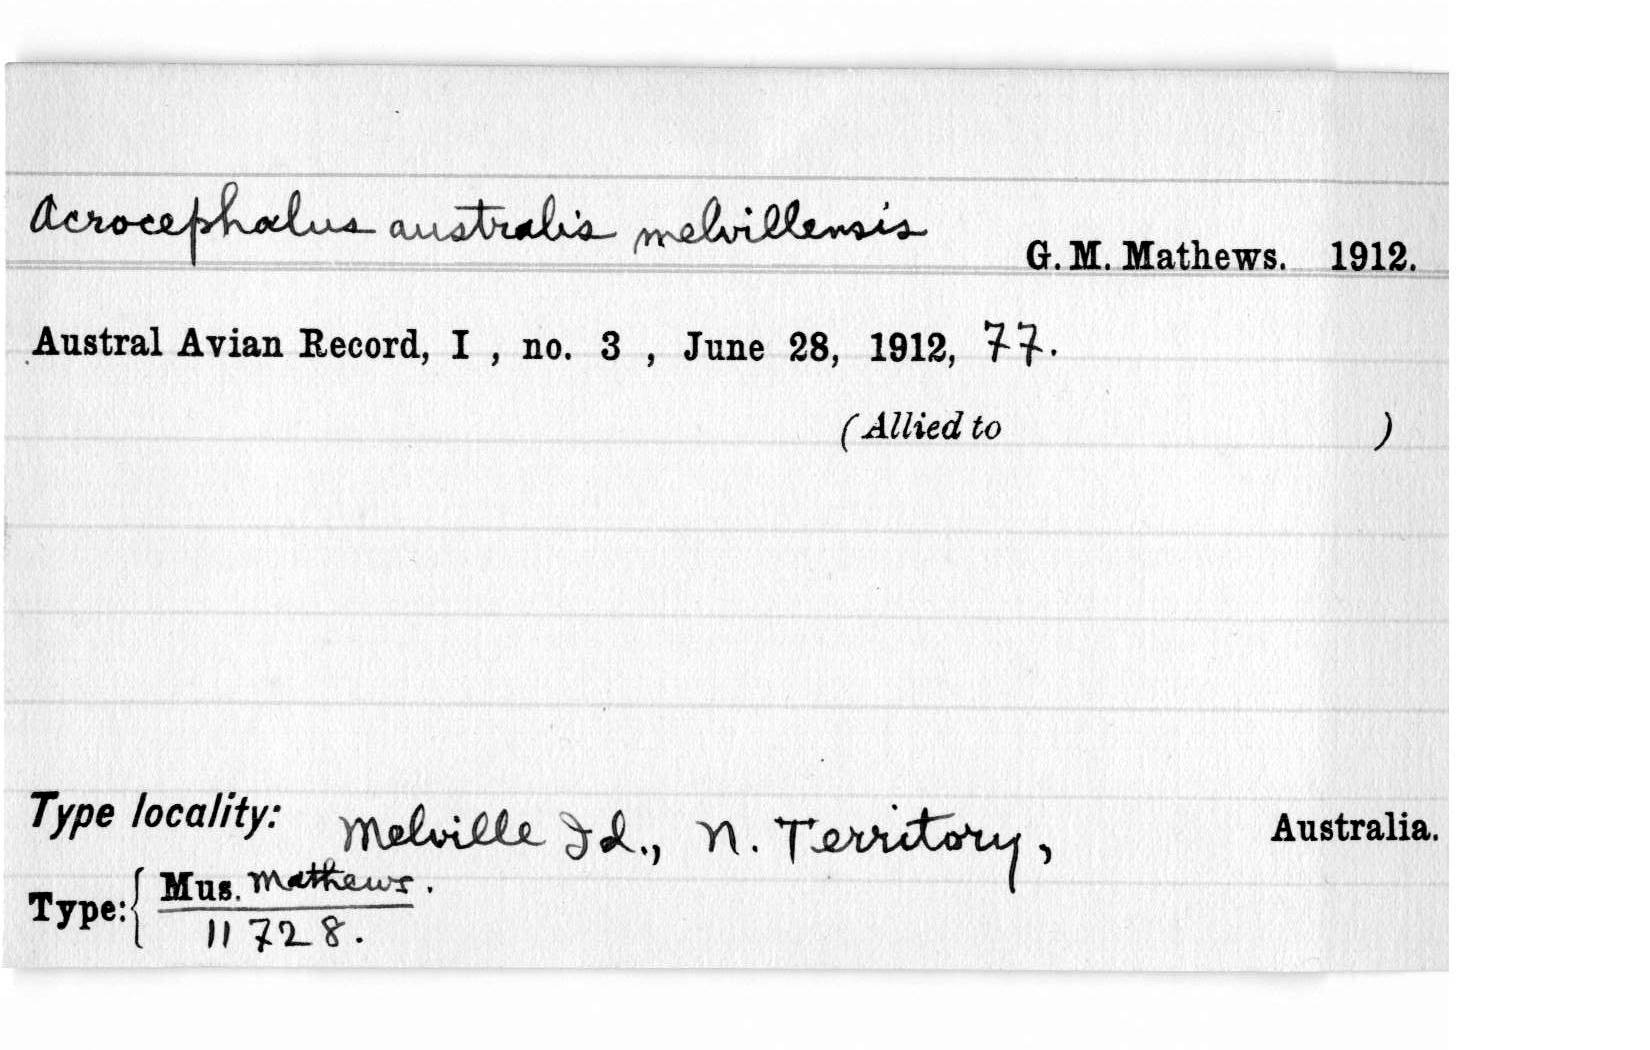 Acrocephalus australis melvillensis G. M. Mathews. 1912.
Austral Avian Record, I , no. 3 , June 28, 1912, 77.
(Allied to )
Type locality: Melville Id., N. Territory, Australia.
Type: { Mus. Mathews.
11728.